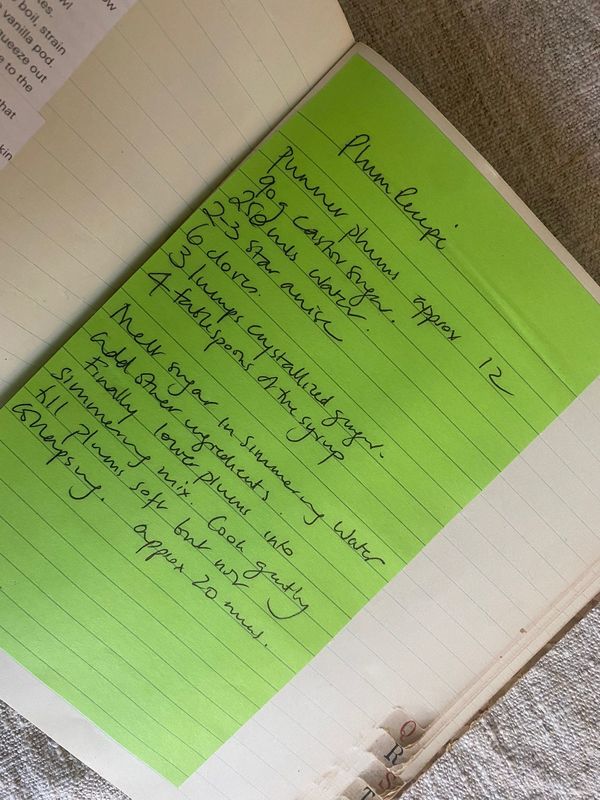 boil, strain
vanilla pod.
queeze out
e to the
that
kin
Plum
Punner plums approx 12
90g castor sugar.
250 mls water.
2-3 star anise
6 cloves.
3 lumps crystallized sugar.
4 tablespoons of the syrup
Melt sugar in simmering water
add other ingredients.
Finally lower plums into
simmering mix. Cook gently
till plums soft but not
collapsing. approx 20 mins.
Q
R
S
T